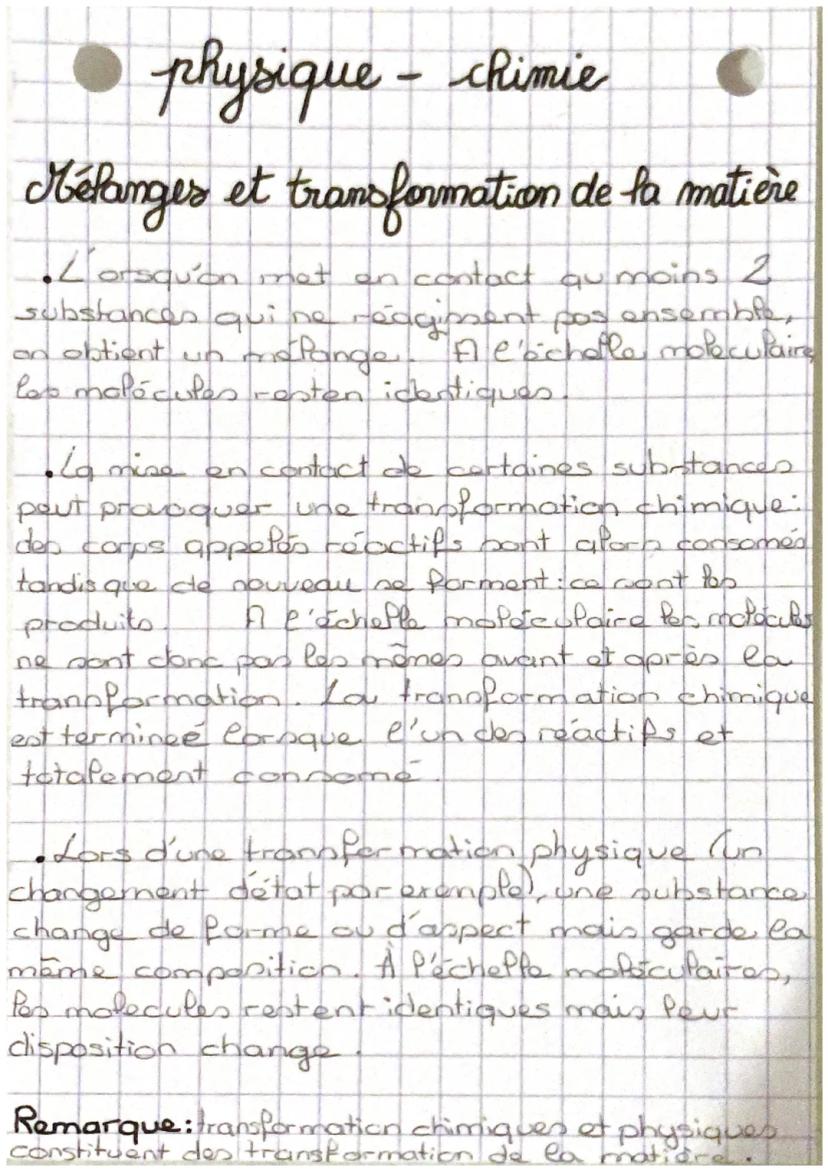 physique - chimie
Mélanges et transformation de la matière
. L'orsqu'on met en contact au moins 2
substances qui ne réagissent pas ensemble,
on obtient un mélange. A l'échelle moleculaire
les molécules resten identiques.
. La mise en contact de certaines substances
peut provoquer une transformation chimique:
des corps appelés réactifs sont alors consomés
tandis que de nouveau se forment : ce sont les
produits. A l'échelle moléculaire les molécules
ne sont donc pas les mêmes avant et après la
transformation. La transformation chimique
est termineé lorsque l'un des réactifs et
totalement consomé.
. Lors d'une transformation physique (un
changement d'état par exemple), une substance
change de forme ou d'aspect mais garde la
même composition. À l'échelle moléculaires,
les molecules restent identiques mais leur
disposition change.
Remarque: transformation chimiques et physiques
constituent des transformation de la matière.